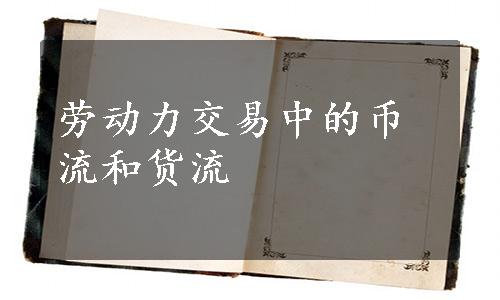 劳动力交易中的币
流和货流